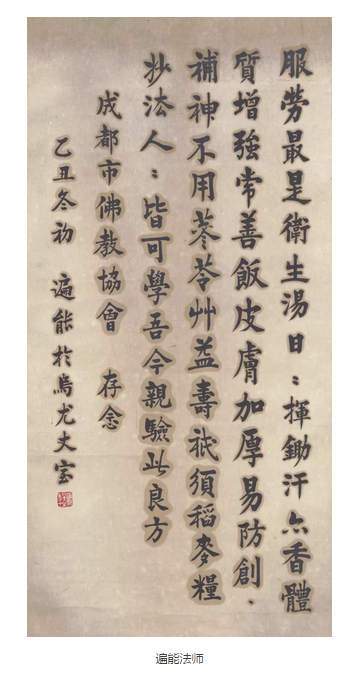 服勞最是衛生湯日〻揮鋤汗亦香體
質增強常善飯皮膚加厚易防創、
補神不用蔘苓艸益壽祇須稻麥糧
玅法人〻皆可學吾今親驗此良方
成都市佛教協會 存念
乙丑冬初 遍能於烏尤丈室
遍能法师